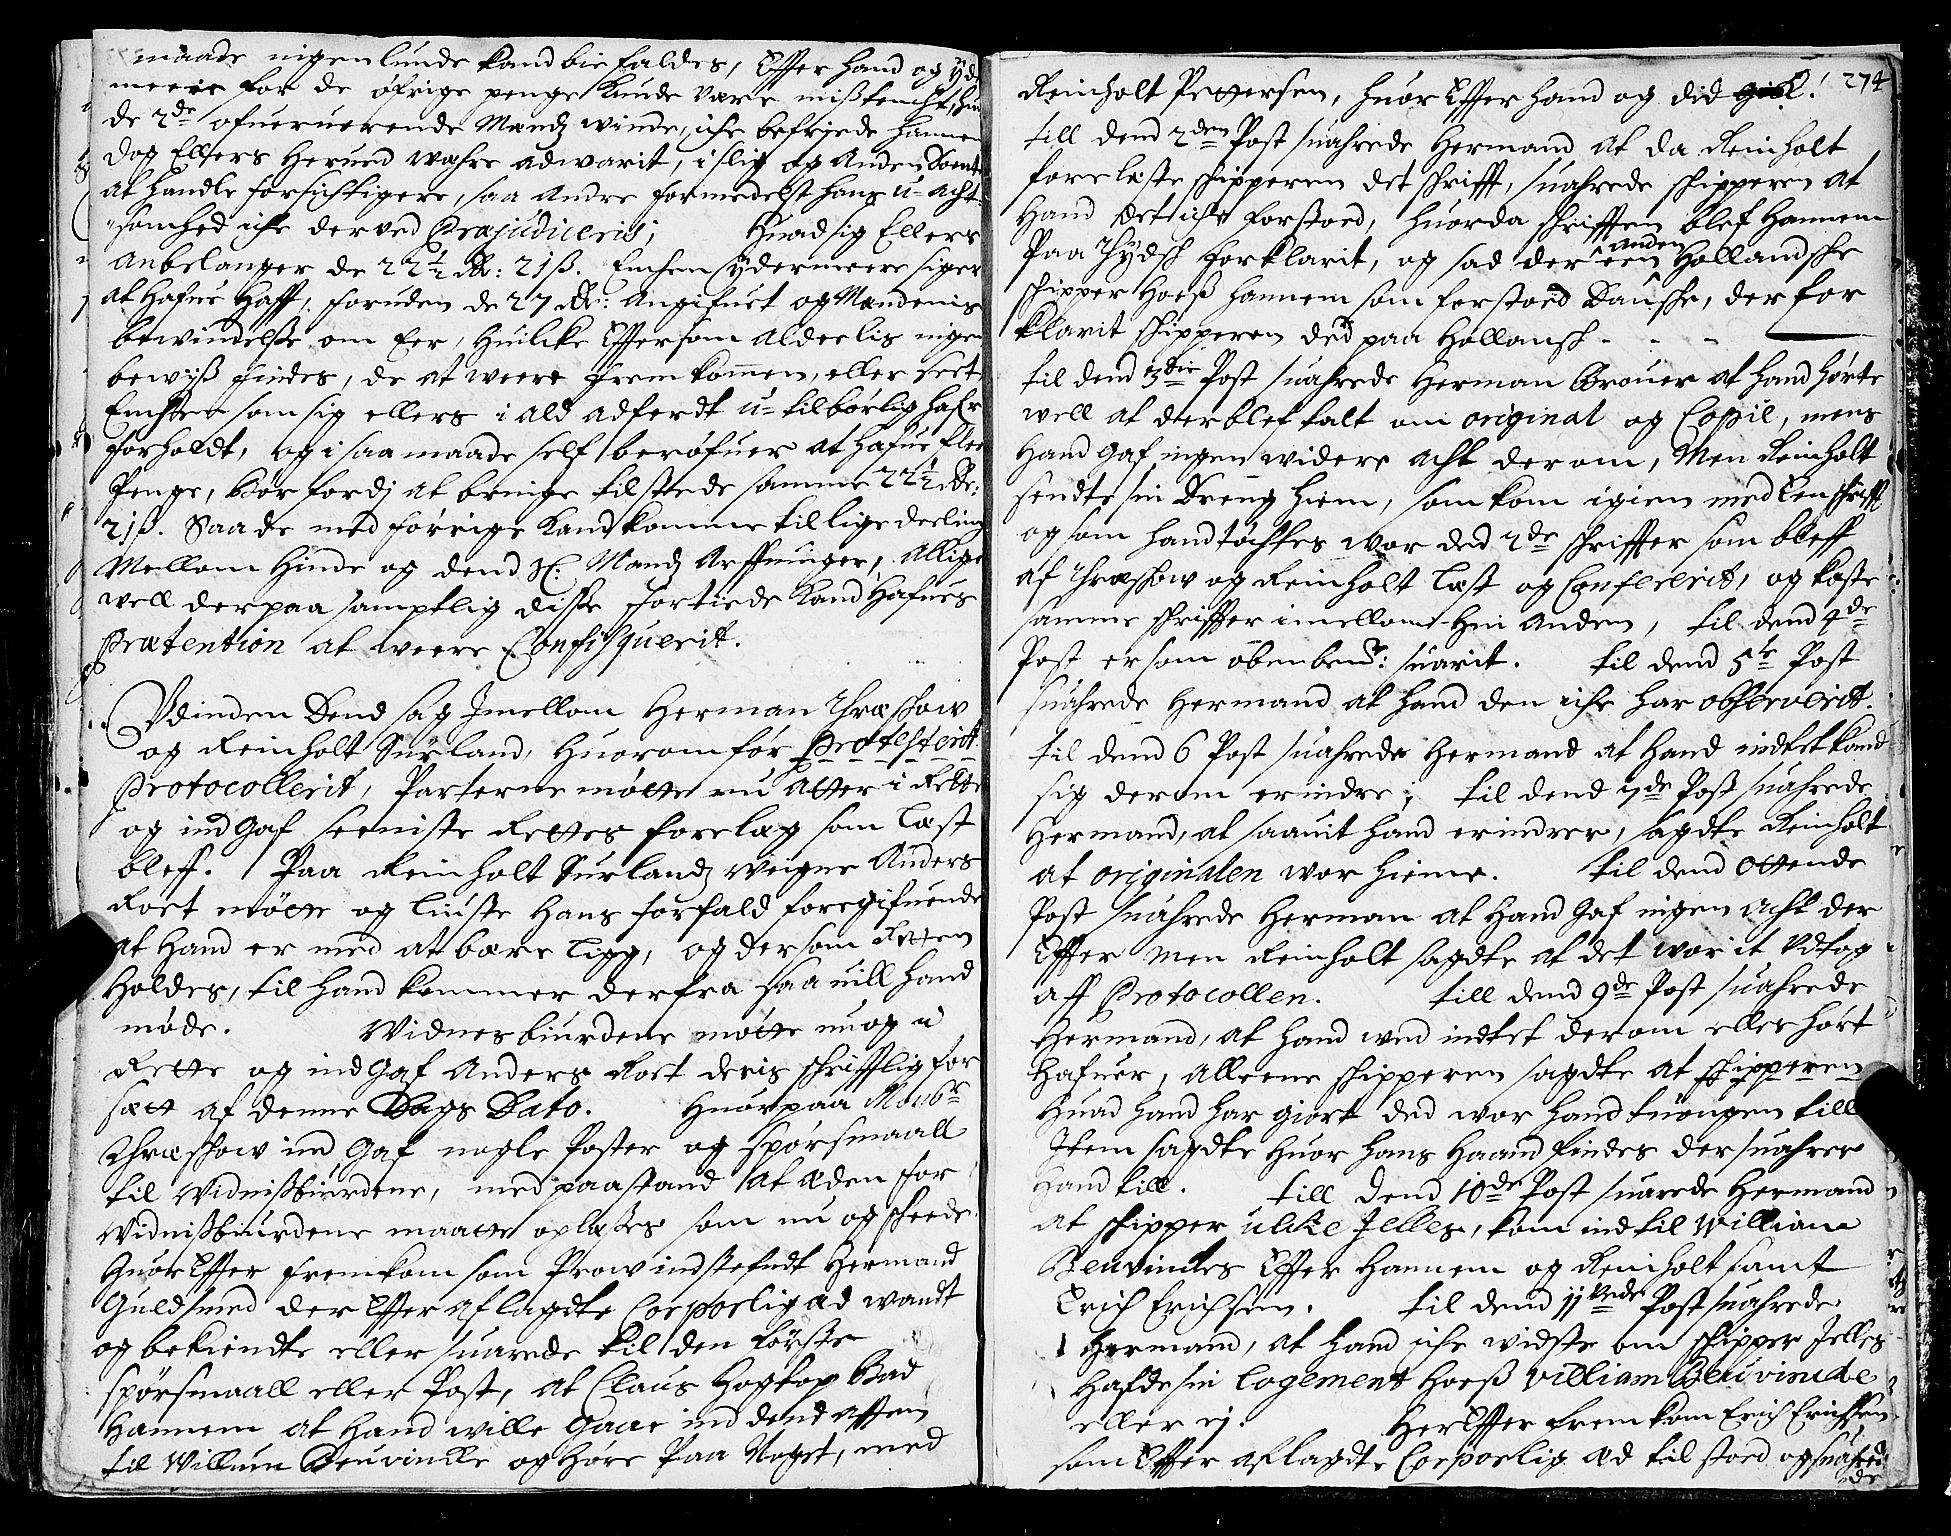 maade ingenlunde kand bie faldes, Effter hand og yde
meere for de øfrige penge kunde være mißtencht, hui
de 2de ofueruerende Mendz winde, iche befriede hannem
dog Ellers herued wahre adwarit, i slig og Anden
at handle forsictigere, saa Andre formedelst hans u-acht-
somhed iche derved Præjudiceris; Huad sig Ellers
Anbelanger de 22½ dr: 21ß. Enchen ydermeere siger
at hafue haff, foruden de 27 dr: Angifuet og Mandenis
bewindelse om Eer, Huilcke Effter som aldeelis ingen
bewiß findes, de at were fremkommen, eller rect
Enchen som sig ellers i ald adferdt u-tilbørlig hafr
forholdt, og i saa maade self berøfuer at hafue flere
Penge, bør fordj at bringe tilstede samme 22½ dr:
21ß. Saa de med forrige kand komme til lige deeling
Mellom hinde og dend Sl. Mands Arffuinger, Allige
well der paa samptlig disse fortiede kand hafues
Prætention at were Confisquerit.
Udinden Dend sag Imellom Herman Thraschow
og Reinholt Surland, Huorom før Protesterit
Protocollerit, Parterne møtte nu atter i Rette
og indgaf seeniste Rettes forelæg som læst
bleff. Paa Reinholt Surlandz veigne Anders
Roet møtte og liuste hans forfald foregifuende
at hand er med at bære liig, og der som Retten
holdes, til hand kommer derfra saa uill hand
møde. Widnesbiurdene møtte nu og i
Rette og indgaf Anders Roet deris schrifftlig for
sætt af denne Dags Dato. Huorpaa Monsr
Thraschow ind gaf nogle Poster og spørsmaall
til Widnißbiurdene, med paastand at Eden for
Widnißbiurdene maatte oplæses som nu og scheede.
Huor Effter fremkom som Prow indstefndt Hermand
Guldsmed der Effter aflagdte Corporlig Æd wandt
og bekiendte eller suarede til den første
spørsmaall eller Post, at Claus Hogkop Bad
Hannem at hand wille gaae ind dend afften
til Willum Beuvincke og høre paa Noget, med
274
Reinholt Pettersen, huor Effter hand og did gick!
till dend 2den Post suahrede Hermand at da Reinholt
forelæste schipperen det schrifft, suahrede schipperen at
Hand det iche forstoed, huorda schrifften blef Hannem
Paa Tydsch forklarit, og sad der een anden Hollandsche
schipper hoeß hannem som forstoed Dansche, der for
klarit schipperen ded paa Hollansch - - -
til dend 3die Post suahrede Herman Brouer at hand hørte
well at der blef talt om original og Copie, mens
Hand gaf ingen widere acht derom, Men Reinholt
sendte sin Dreng hiem, som kom igien med Een schrifft
og som hand töchtes wor ded 2de schriffter som bleff
af Thraschow og Reinholt læst og Confererit, og kaste
samme schriffter imellom hin Anden, til dend 4de
Post er som obenbemt: suarit. til dend 5te Post
suahrede Hermand at hand den iche har observerit.
til dend 6 Post suahrede Hermand at hand indtet kand
sig derom erindre; til dend 7de Post suahrede
Hermand, at saauit hand erindrer, sagdte Reinholt
at originalen wor hieme. til dend Ottende
Post suahrede Herman at hand gaf ingen acht der
Effter men Reinholt sagdte at det wor it Udtog
aff Protocollen. till dend 9de Post suahrede
Hermand, at hand wed indtet derom eller hört
hafuer, alleene schipperen sagdte at schipperen
Huad hand har giort ded wor hand tuongen till
Item sagdte huor hans haand findes der suahrer
Hand till. till dend 10de Post suarede Hermand
at schipper ulke Jelles, kom ind til William
Beuvinckes Effter hannem og Reinholt samt
Erich Erichsen. til dend 11vede Post suahrede
Hermand, at hand iche widste om schipper Jelles
hafde sin Logement hoeß William Beuvincke
eller ej. Her Effter fremkom Erich Erichsen
som Effter aflagdte Corporlig Æd til stoed og suahre
de